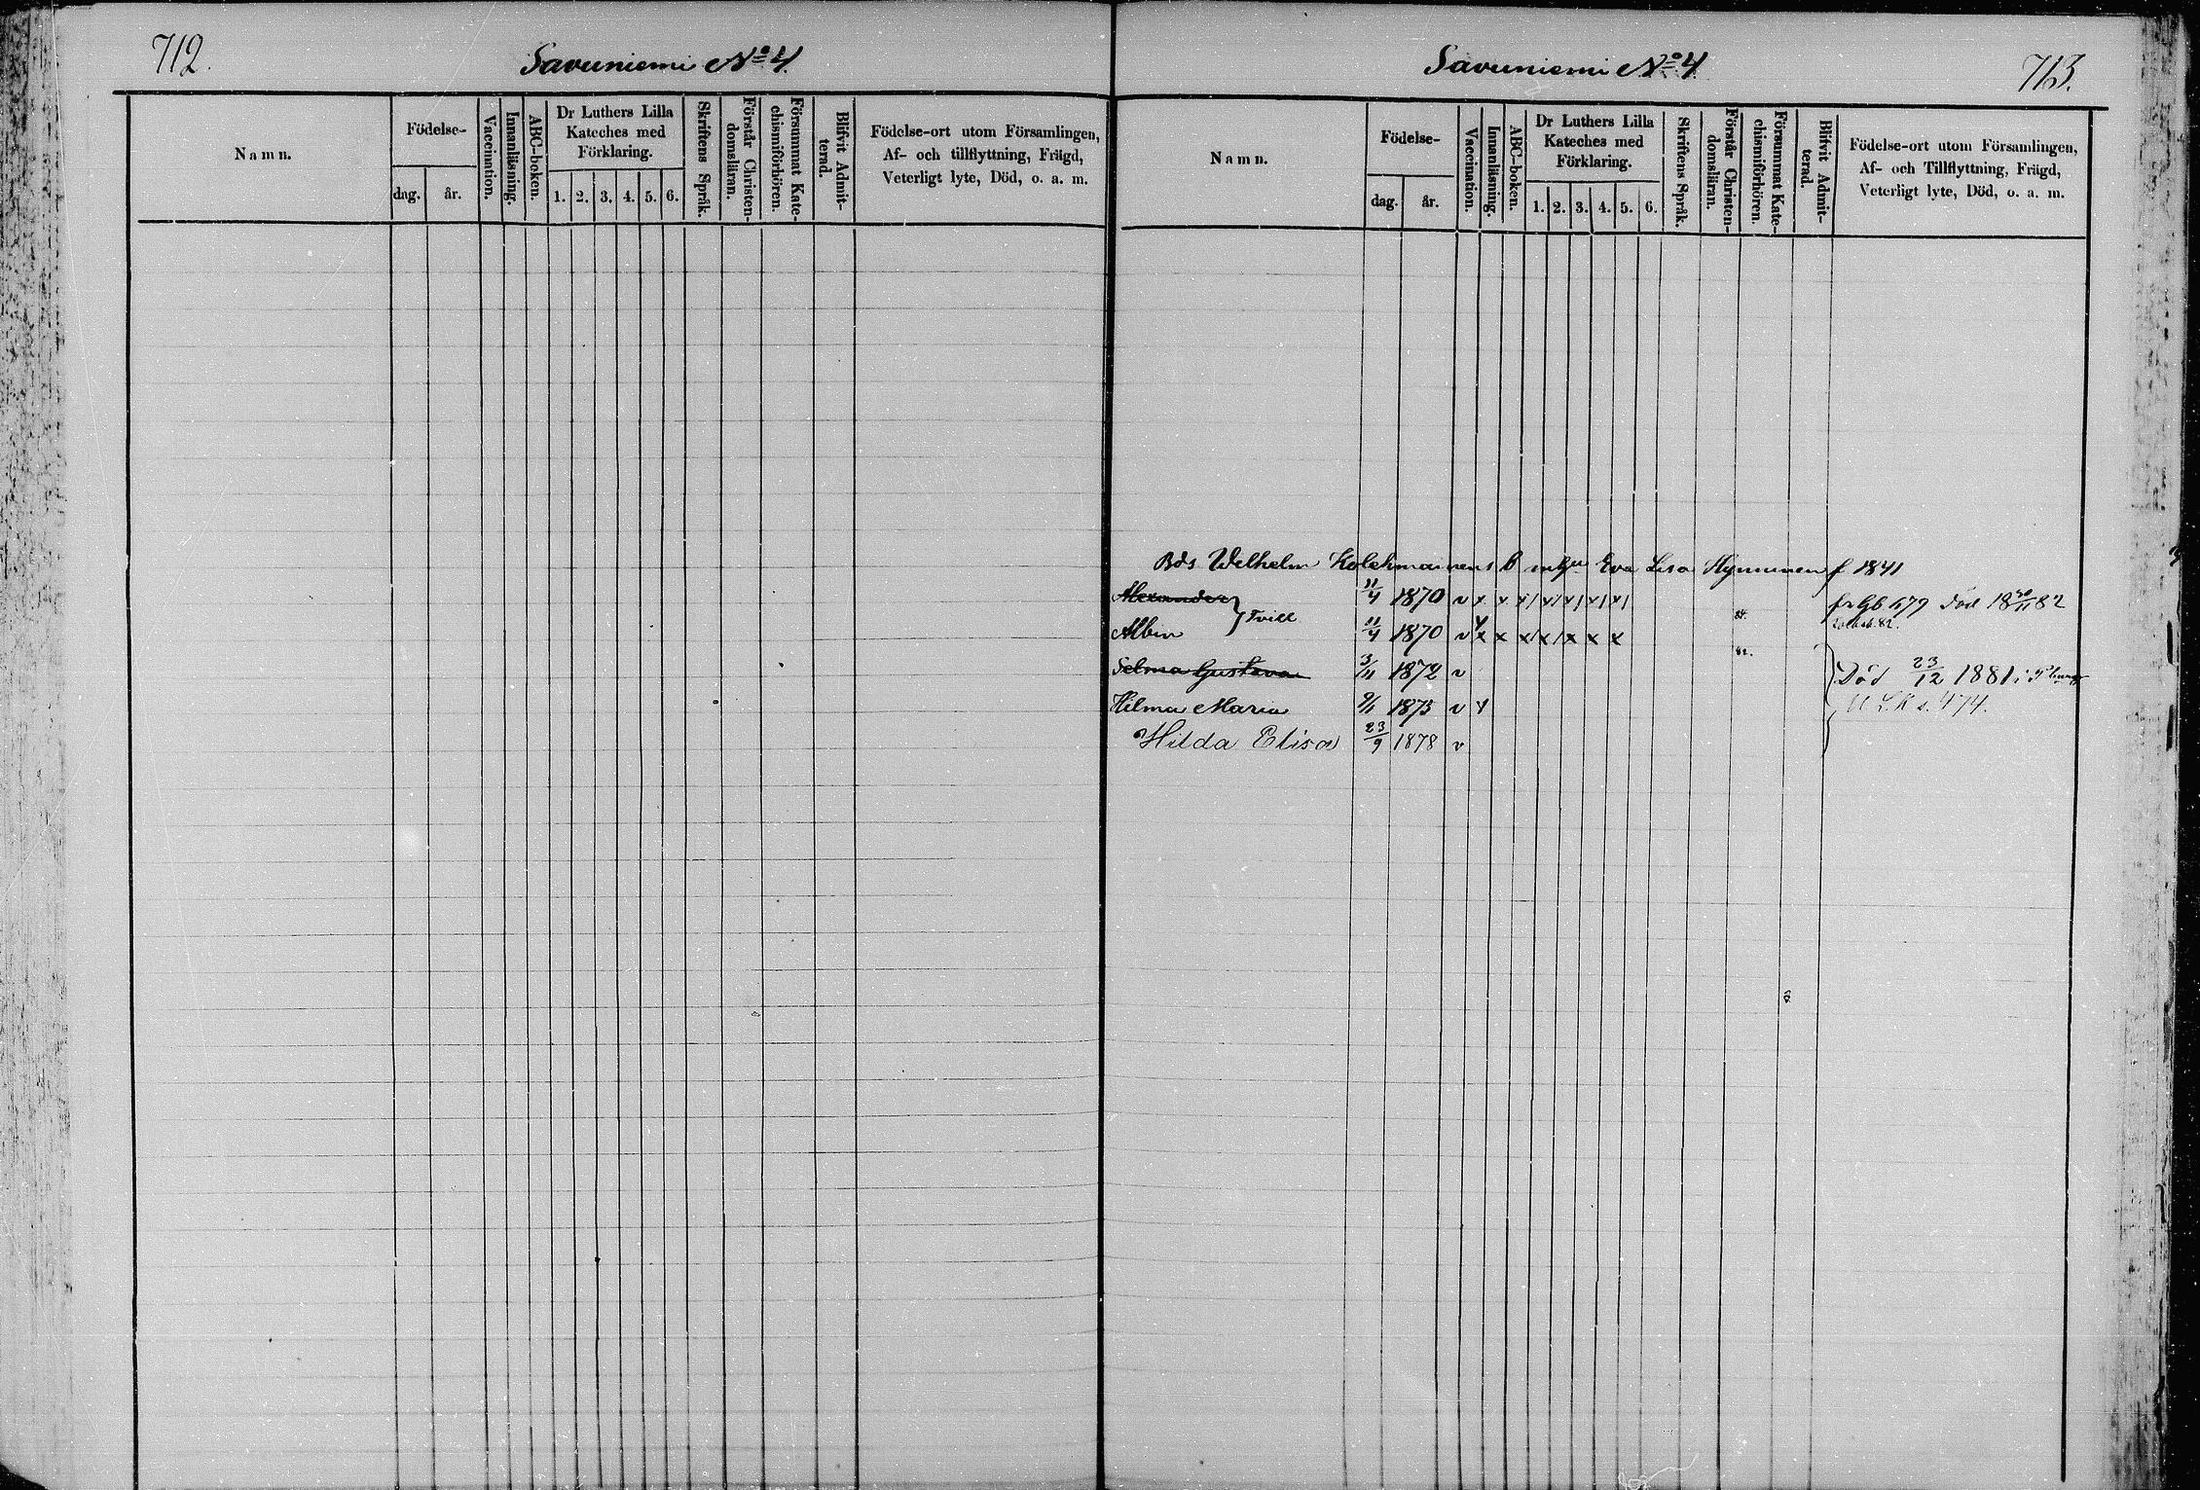 712.
Savuniemi No 4
Namn.
Födelse-
dag.
år.
Vaccination.
Innanläsning.
ABC-boken.
Dr Luthers Lilla
Kateches med
Förklaring.
1. 2. 3. 4. 5. 6.
Skriftens Språk.
Förstår Christen-
domsläran.
Försummat Kate-
chismiförhören.
Blifvit Admit-
terad.
Födelse-ort utom Församlingen,
Af- och tillflyttning, Frägd,
Veterligt lyte, Död, o. a. m.
Savuniemi No 4
713.
Namn.
Födelse-
dag.
år.
Vaccination.
Innanläsning.
ABC-boken.
Dr Luthers Lilla
Kateches med
Förklaring.
1. 2. 3. 4. 5. 6.
Skriftens Språk.
Förstår Christen-
domsläran.
Försummat Kate-
chismiförhören.
Blifvit Admit-
terad.
Födelse-ort utom Församlingen,
Af- och Tillflyttning, Frägd,
Veterligt lyte, Död, o. a. m.
Bds Wilhelm Kolehmainens b m hu Eva Lisa Hynninen f 1841
Alexander } Tvill 11/4 1870 v x x x x x x x Död 18 30/11 82
Albin 11/4 1870 v x x x x x x x
Selma Gustava 3/11 1872 v Död 23/12 1881
Hilma Maria 9/1 1875 v
Hilda Elisa 23/9 1878 v